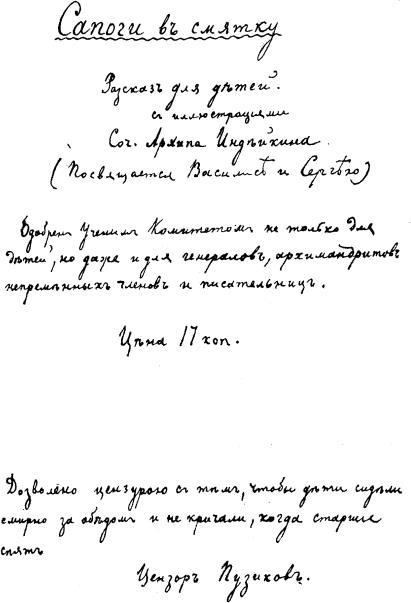 Сапоги въ смятку
Разсказъ для дѣтей.
съ иллюстрацiями
Соч. Архипа Индѣйкина.
(Посвящается Василисѣ и Сергѣю)
Одобренъ Ученымъ Комитетомъ не только для
дѣтей, но даже и для генераловъ, архимандритовъ
непремѣнныхъ членовъ и писательницъ.
Цѣна 17 коп.
Дозволено цензурою съ тѣмъ, чтобы дѣти сидѣли
смирно за обѣдомъ и не кричали, когда старшiе
спятъ
Цензоръ Пузиковъ.